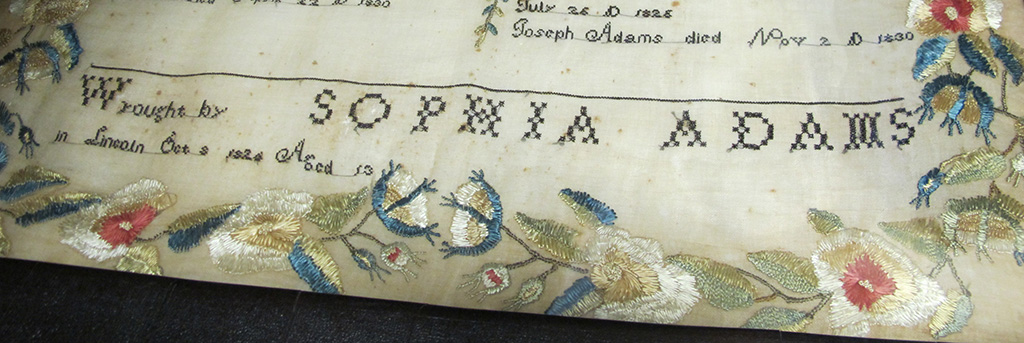 July 26 D 1826
Joseph Adams died Nov 2 D 1830
Wrought by SOPHIA ADAMS
in Lincoln Oct 8 1826 Aged 13